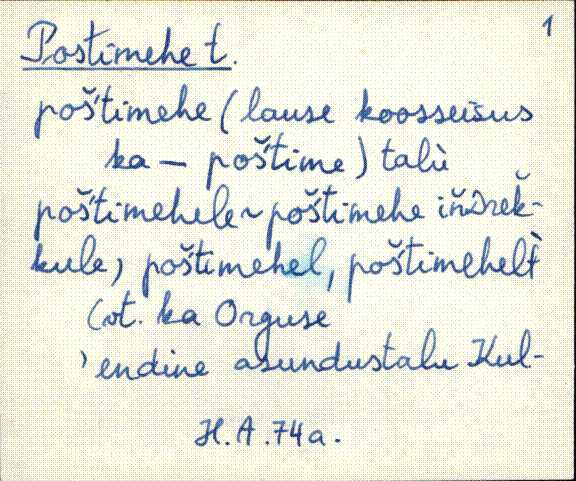 1
Postimehe t.
poštimehe (lause koosseisus
ka – poštime) talù
poštimehele ~ poštimehe
kule) poštimehel, poštimehelt̀
(vt. ka Orguse
’endine asundustalu Kul-
H.A.74a.